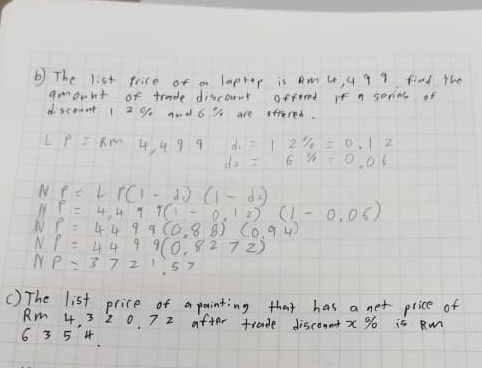 b) The list price of a laptop is Rm 4,499 find the
amount of trade discount offered if a series of
discount 12% and 6% are offered.
LP = Rm 4,499 d₁ = 12% = 0.12
d₂ = 6% = 0.06
NP = LP(1 - d₁) (1 - d₂)
NP = 4,499(1 - 0.12) (1 - 0.06)
NP = 4499(0.88) (0.94)
NP = 4499(0.8272)
NP = 3721.57
c) The list price of a painting that has a net price of
Rm 4,320.72 after trade discount x% is Rm
6354.